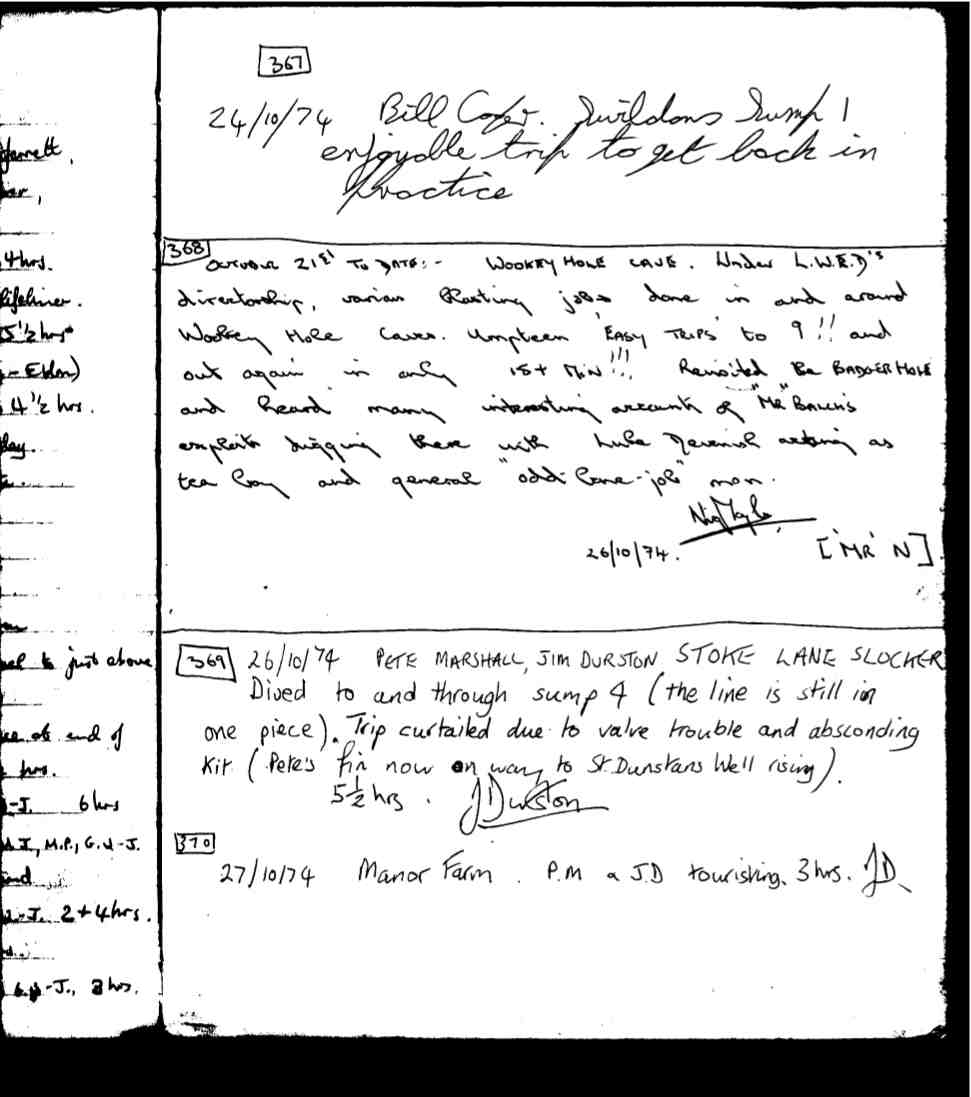 Jarrett,
4 hrs.
lifeliner.
5 1/2 hrs
- Eldon)
4 1/2 hrs.
to just above
end of
hrs.
-J. 6 hrs
M.P., G.W-J.
-J. 2+4 hrs.
-J., 3 hrs.
367
24/10/74 Bill Swildons Sump 1
enjoyable trip to get back in
practice
368
October 21st To DATE:- WOOKEY HOLE CAVE. Under L.W.E.D's
directorship, various blasting jobs done in and around
Wookey Hole Caves. Umpteen 'EASY TRIPS' to 9!! and
out again in only 15+ MIN!!! Revisited the BADGER HOLE
and heard many interesting accounts of "MR" BALCH'S
exploits digging there with Luke Devenish acting as
tea boy and general "odd bone-job" man.
26/10/74. ['MR' N]
369 26/10/74 PETE MARSHALL, JIM DURSTON STOKE LANE SLOCKER
Dived to and through sump 4 (the line is still in
one piece). Trip curtailed due to valve trouble and absconding
kit (Pete's fin now on way to St. Dunstans Well rising).
5½ hrs. J Durston
370
27/10/74 Manor Farm. P.M & J.D tourishing. 3 hrs. JD.